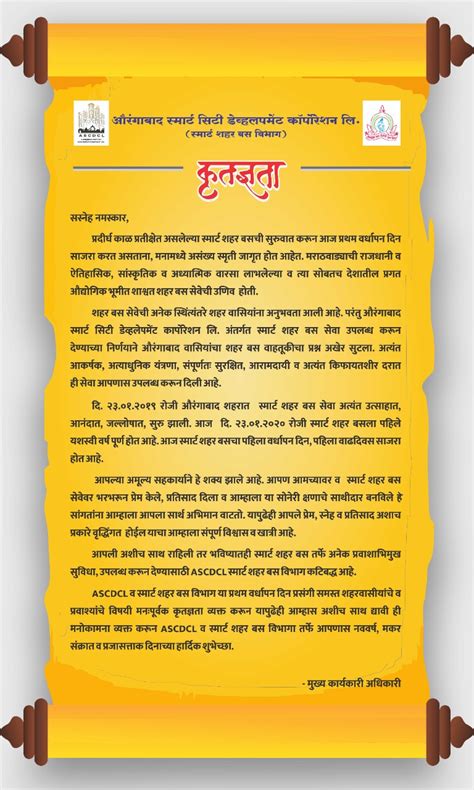 औरंगाबाद स्मार्ट सिटी डेव्हलपमेंट कॉर्पोरेशन लि.
(स्मार्ट शहर बस विभाग)
ASCDCL
कृतज्ञता
सस्नेह नमस्कार,
प्रदीर्घ काळ प्रतीक्षेत असलेल्या स्मार्ट शहर बसची सुरुवात करून आज प्रथम वर्धापन दिन
साजरा करत असताना, मनामध्ये असंख्य स्मृती जागृत होत आहेत. मराठवाड्याची राजधानी व
ऐतिहासिक, सांस्कृतिक व अध्यात्मिक वारसा लाभलेल्या व त्या सोबतच देशातील प्रगत
औद्योगिक भूमीत शाश्वत शहर बस सेवेची उणिव होती.
शहर बस सेवेची अनेक स्थित्यंतरे शहर वासियांना अनुभवता आली आहे. परंतु औरंगाबाद
स्मार्ट सिटी डेव्हलेपमेंट कार्पोरेशन लि. अंतर्गत स्मार्ट शहर बस सेवा उपलब्ध करून
देण्याच्या निर्णयाने औरंगाबाद वासियांचा शहर बस वाहतूकीचा प्रश्न अखेर सुटला. अत्यंत
आकर्षक, अत्याधुनिक यंत्रणा, संपूर्णतः सुरक्षित, आरामदायी व अत्यंत किफायतशीर दरात
ही सेवा आपणास उपलब्ध करून दिली आहे.
दि. २३.०१.२०१९ रोजी औरंगाबाद शहरात स्मार्ट शहर बस सेवा अत्यंत उत्साहात,
आनंदात, जल्लोषात, सुरु झाली. आज दि. २३.०१.२०२० रोजी स्मार्ट शहर बसला पहिले
यशस्वी वर्ष पूर्ण होत आहे. आज स्मार्ट शहर बसचा पहिला वर्धापन दिन, पहिला वाढदिवस साजरा
होत आहे.
आपल्या अमूल्य सहकार्याने हे शक्य झाले आहे. आपण आमच्यावर व स्मार्ट शहर बस
सेवेवर भरभरून प्रेम केले, प्रतिसाद दिला व आम्हाला या सोनेरी क्षणाचे साथीदार बनविले हे
सांगतांना आम्हाला आपला सार्थ अभिमान वाटतो. यापुढेही आपले प्रेम, स्नेह व प्रतिसाद अशाच
प्रकारे वृद्धिंगत होईल याचा आम्हाला संपूर्ण विश्वास व खात्री आहे.
आपली अशीच साथ राहिली तर भविष्यातही स्मार्ट शहर बस तर्फे अनेक प्रवाशाभिमुख
सुविधा, उपलब्ध करून देण्यासाठी ASCDCL स्मार्ट शहर बस विभाग कटिबद्ध आहे.
ASCDCL व स्मार्ट शहर बस विभाग या प्रथम वर्धापन दिन प्रसंगी समस्त शहरवासीयांचे व
प्रवाश्यांचे विषयी मनःपूर्वक कृतज्ञता व्यक्त करून यापुढेही आम्हास अशीच साथ द्यावी ही
मनोकामना व्यक्त करून ASCDCL व स्मार्ट शहर बस विभागा तर्फे आपणास नववर्ष, मकर
संक्रात व प्रजासत्ताक दिनाच्या हार्दिक शुभेच्छा.
- मुख्य कार्यकारी अधिकारी